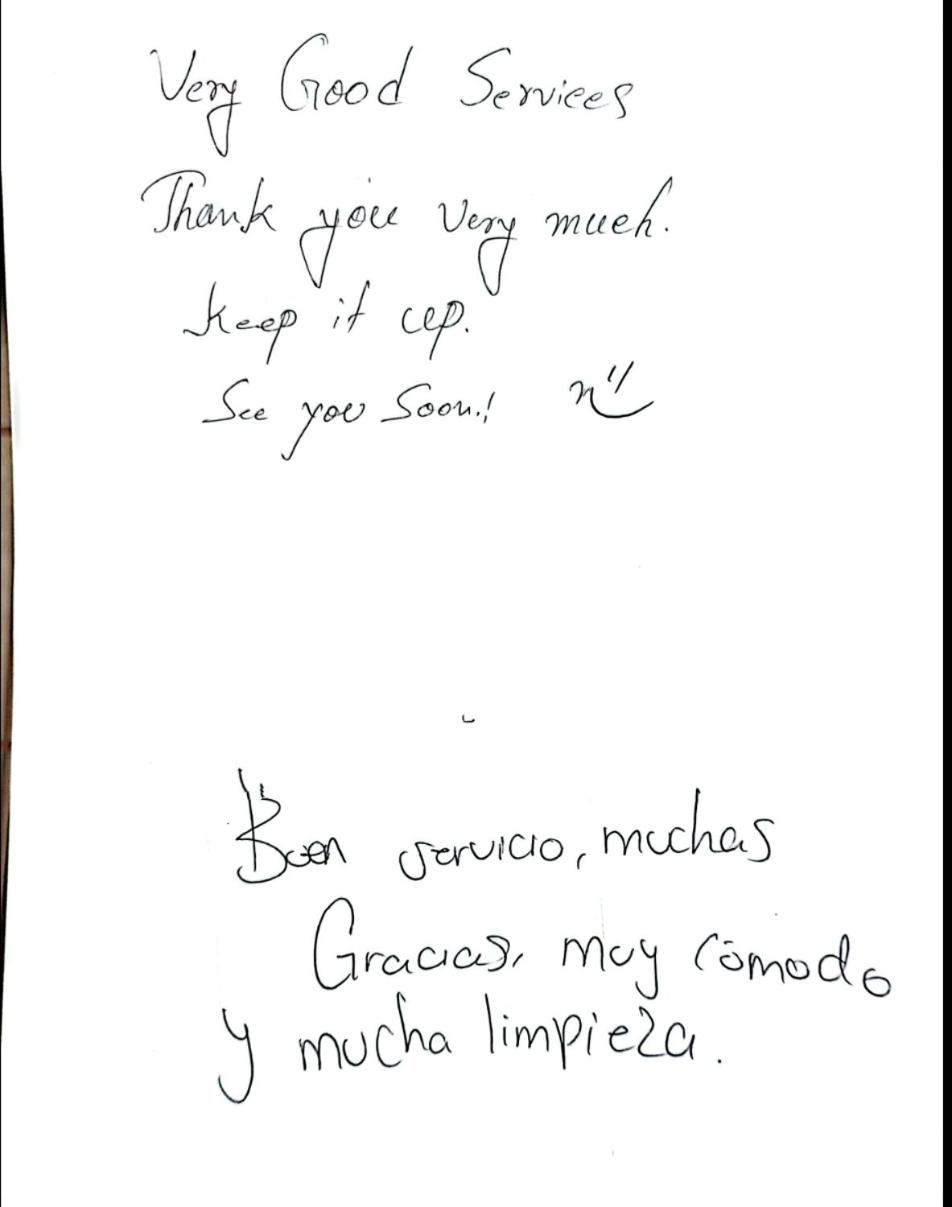 Very Good Services
Thank you very much.
Keep it up.
See you Soon.!
Buen servicio, muchas
Gracias, muy cómodo
y mucha limpieza.